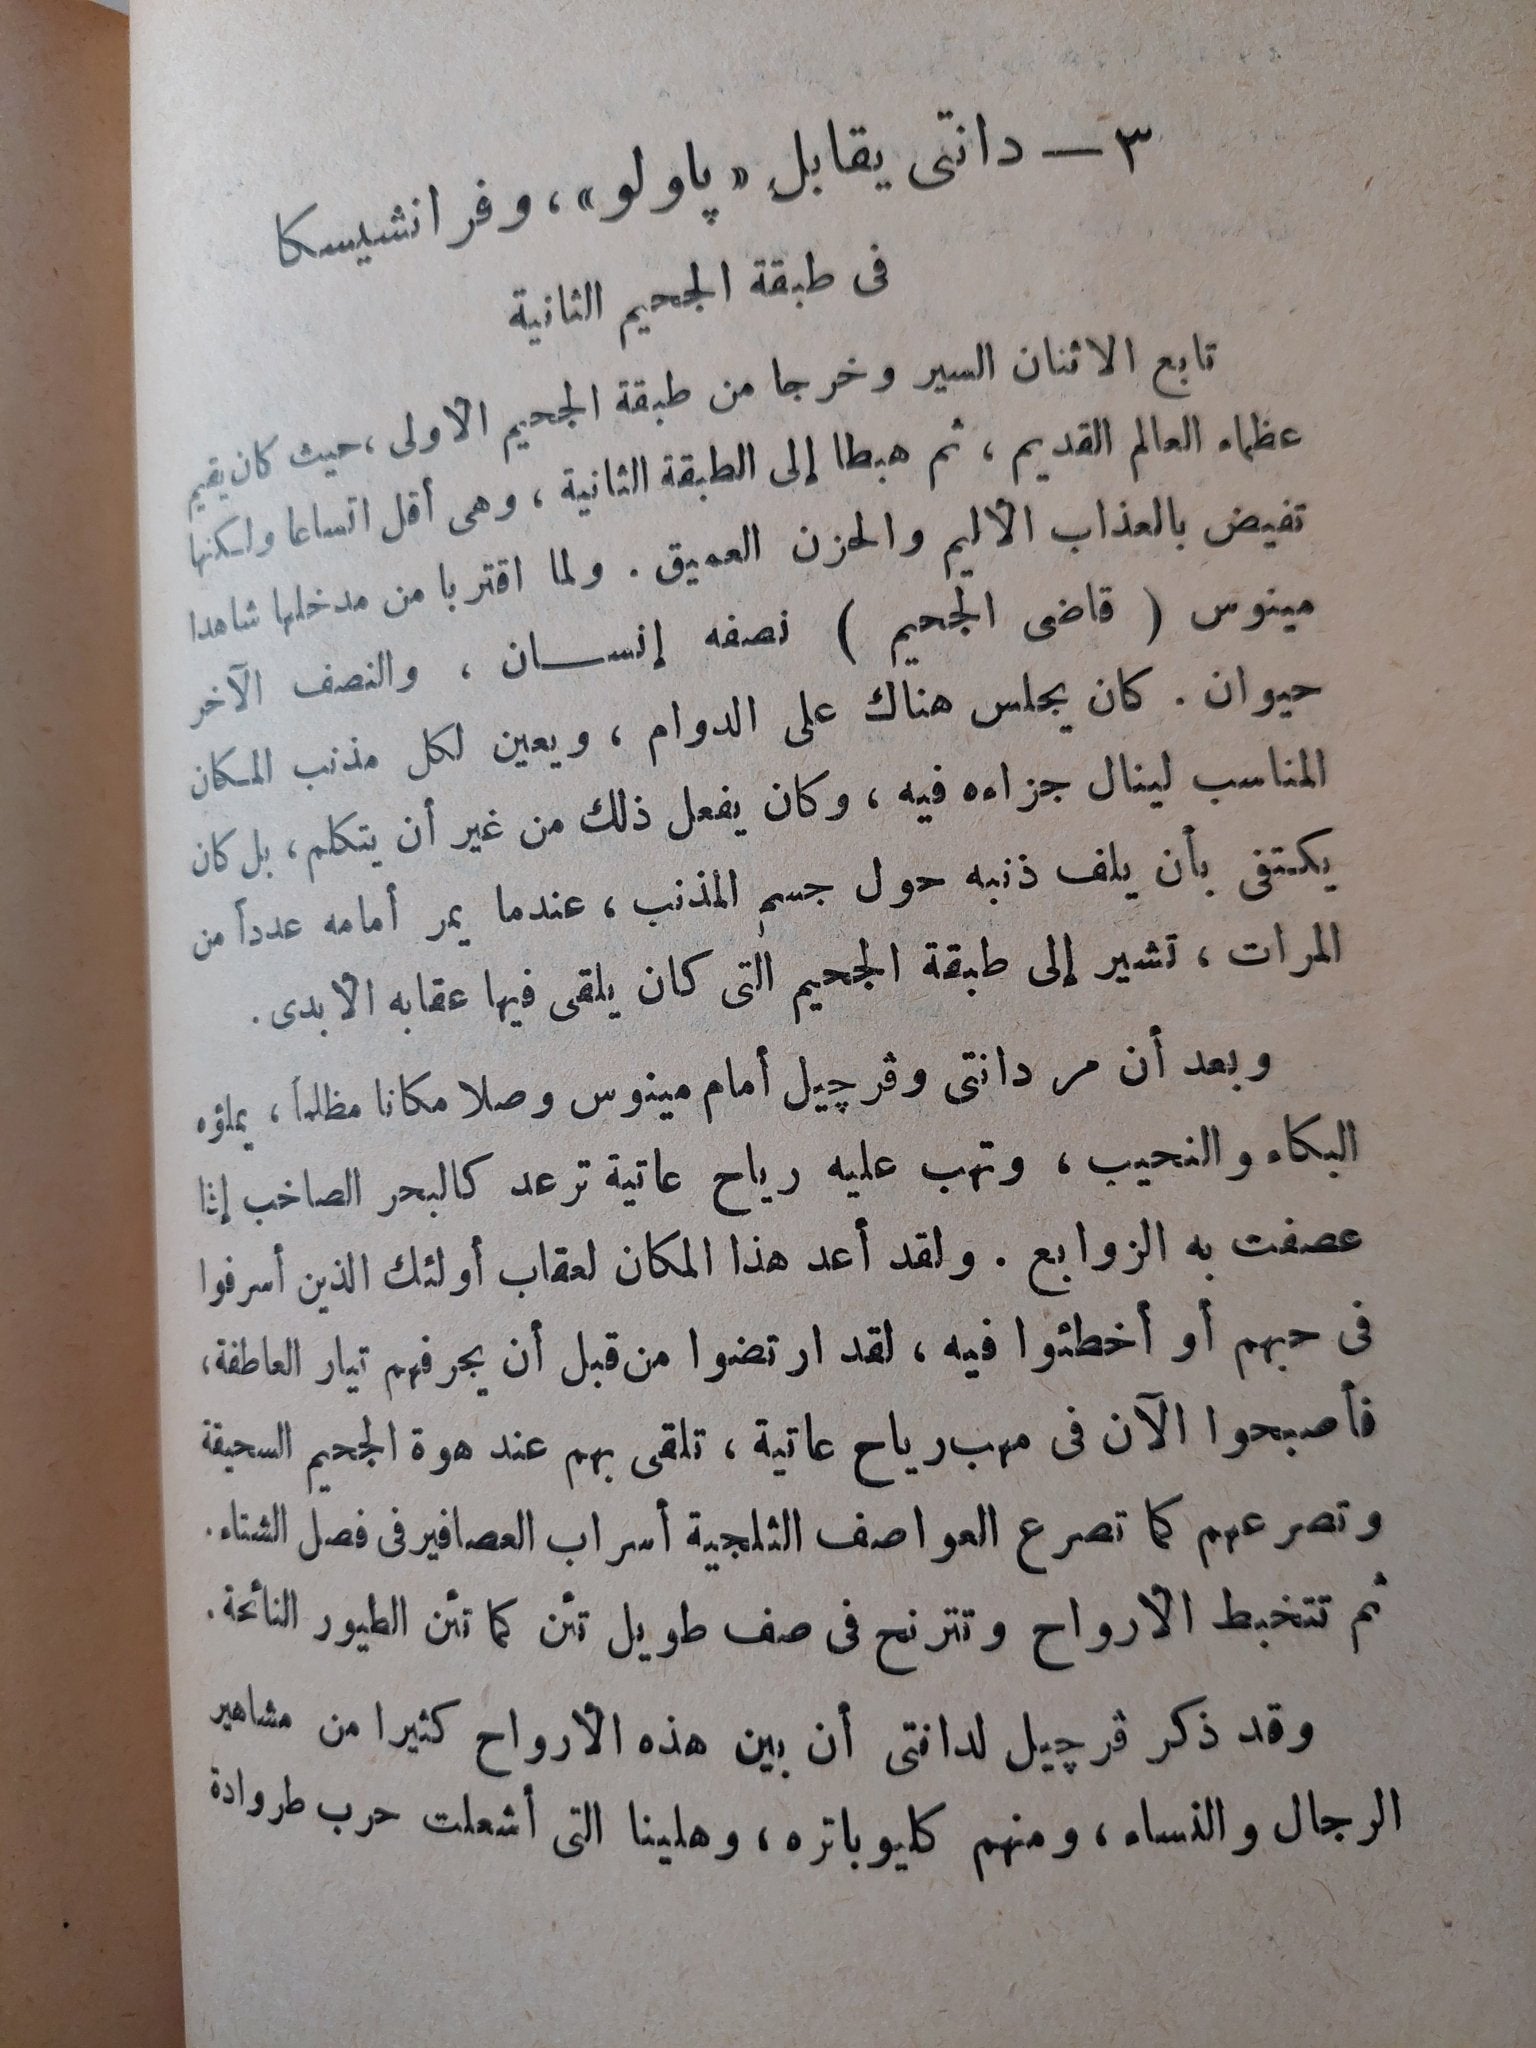 ٣ — دانتى يقابل « پاولو » ، وفرانشيسكا
فى طبقة الجحيم الثانية
تابع الاثنان السير وخرجا من طبقة الجحيم الأولى ، حيث كان يقيم
عظماء العالم القديم ، ثم هبطا إلى الطبقة الثانية ، وهى أقل اتساعا ولكنها
تفيض بالعذاب الأليم والحزن العميق . ولما اقتربا من مدخلها شاهدا
مينوس ( قاضى الجحيم ) نصفه إنسان ، والنصف الآخر
حيوان . كان يجلس هناك على الدوام ، ويعين لكل مذنب المكان
المناسب لينال جزاءه فيه ، وكان يفعل ذلك من غير أن يتكلم ، بل كان
يكتفى بأن يلف ذنبه حول جسم المذنب ، عندما يمر أمامه عدداً من
المرات ، تشير إلى طبقة الجحيم التى كان يلقى فيها عقابه الأبدى .
وبعد أن مر دانتى وڤرچيل أمام مينوس وصلا مكانا مظلماً ، يملؤه
البكاء والنحيب ، وتهب عليه رياح عاتية ترعد كالبحر الصاخب إذا
عصفت به الزوابع . ولقد أعد هذا المكان لعقاب أولئك الذين أسرفوا
فى حبهم أو أخطئوا فيه ، لقد ارتضوا من قبل أن يجرفهم تيار العاطفة ،
فأصبحوا الآن فى مهب رياح عاتية ، تلقى بهم عند هوة الجحيم السحيقة
وتصرعهم كما تصرع العواصف الثلجية أسراب العصافير فى فصل الشتاء .
ثم تتخبط الأرواح وتترنح فى صف طويل تئن كما تئن الطيور النائحة .
وقد ذكر ڤرچيل لدانتى أن بين هذه الأرواح كثيرا من مشاهير
الرجال والنساء ، ومنهم كليوباتره ، وهلينا التى أشعلت حرب طروادة